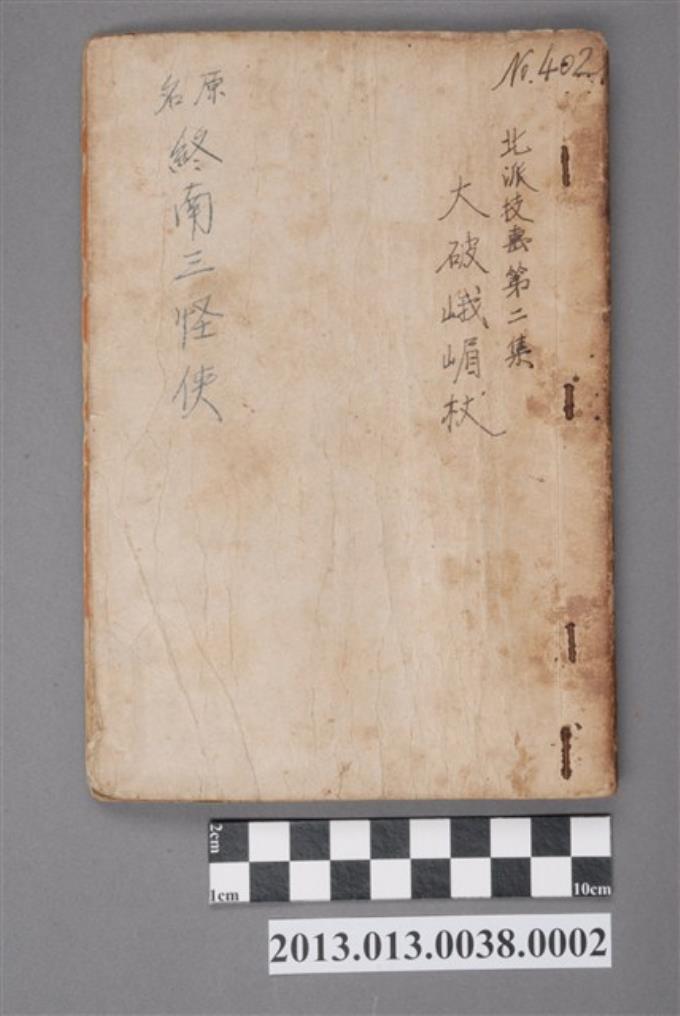 No.402
北派技擊第二集
大破峨嵋杖
原名
終南三怪俠
2cm
1cm
10cm
2013.013.0038.0002